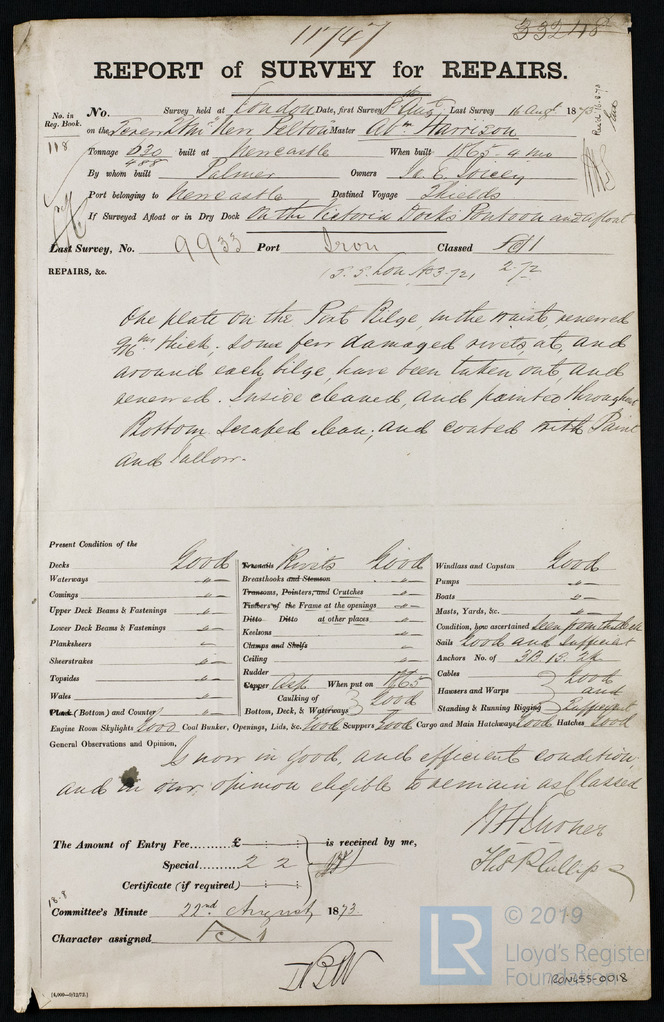 11747
33248
REPORT of SURVEY for REPAIRS.
No. in Reg. Book.
118
No. Survey held at London Date, first Survey 8th Augt Last Survey 16 Augt 1873
on the Screw Str "New Pelton" Master Abm Harrison
Tonnage 630 built at Newcastle When built 1865-9 mo
488
By whom built Palmer Owners Joicey
Port belonging to Newcastle Destined Voyage Shields
If Surveyed Afloat or in Dry Dock On the Victoria Docks Pontoon and afloat
Last Survey, No. 9933 Port Iron Classed
REPAIRS, &c. S.S. Lon No 3-72, 2-72
One plate on the Port Bilge, in the waist, renewed
thick, some few damaged rivets, at, and
around each bilge, have been taken out, and
renewed. Inside cleaned, and painted throughout
Bottom Scraped clean, and coated with Paint
and Tallow.
Present Condition of the
Decks Good
Waterways "
Comings "
Upper Deck Beams & Fastenings "
Lower Deck Beams & Fastenings "
Planksheers "
Sheerstrakes "
Topsides "
Wales "
Plank (Bottom) and Counter "
Treenails Rivets Good
Breasthooks and Stemson "
Transoms, Pointers, and Crutches "
Timbers of the Frame at the openings "
Ditto Ditto at other places "
Keelsons "
Clamps and Shelfs "
Ceiling "
Rudder "
Copper When put on 1865
Caulking of Bottom, Deck, & Waterways Good
Windlass and Capstan Good
Pumps "
Boats "
Masts, Yards, &c. "
Condition, how ascertained Seen from the deck
Sails Good and Sufficient
Anchors No. of 3B. 1S. 2K
Cables Good
Hawsers and Warps and
Standing & Running Rigging Sufficient
Engine Room Skylights Good Coal Bunker, Openings, Lids, &c. Good Scuppers Good Cargo and Main Hatchways Good Hatches Good
General Observations and Opinion,
Is now in good, and efficient condition,
and in our opinion eligible to remain as Classed
Thos Phillips
The Amount of Entry Fee £ : : is received by me,
Special 2 2
Certificate (if required) : :
18-8
Committee's Minute 22nd August 1873.
Character assigned
[4,000—9/12/72.]
© 2019
LR
Lloyd's Register
Foundation
RON455-0018